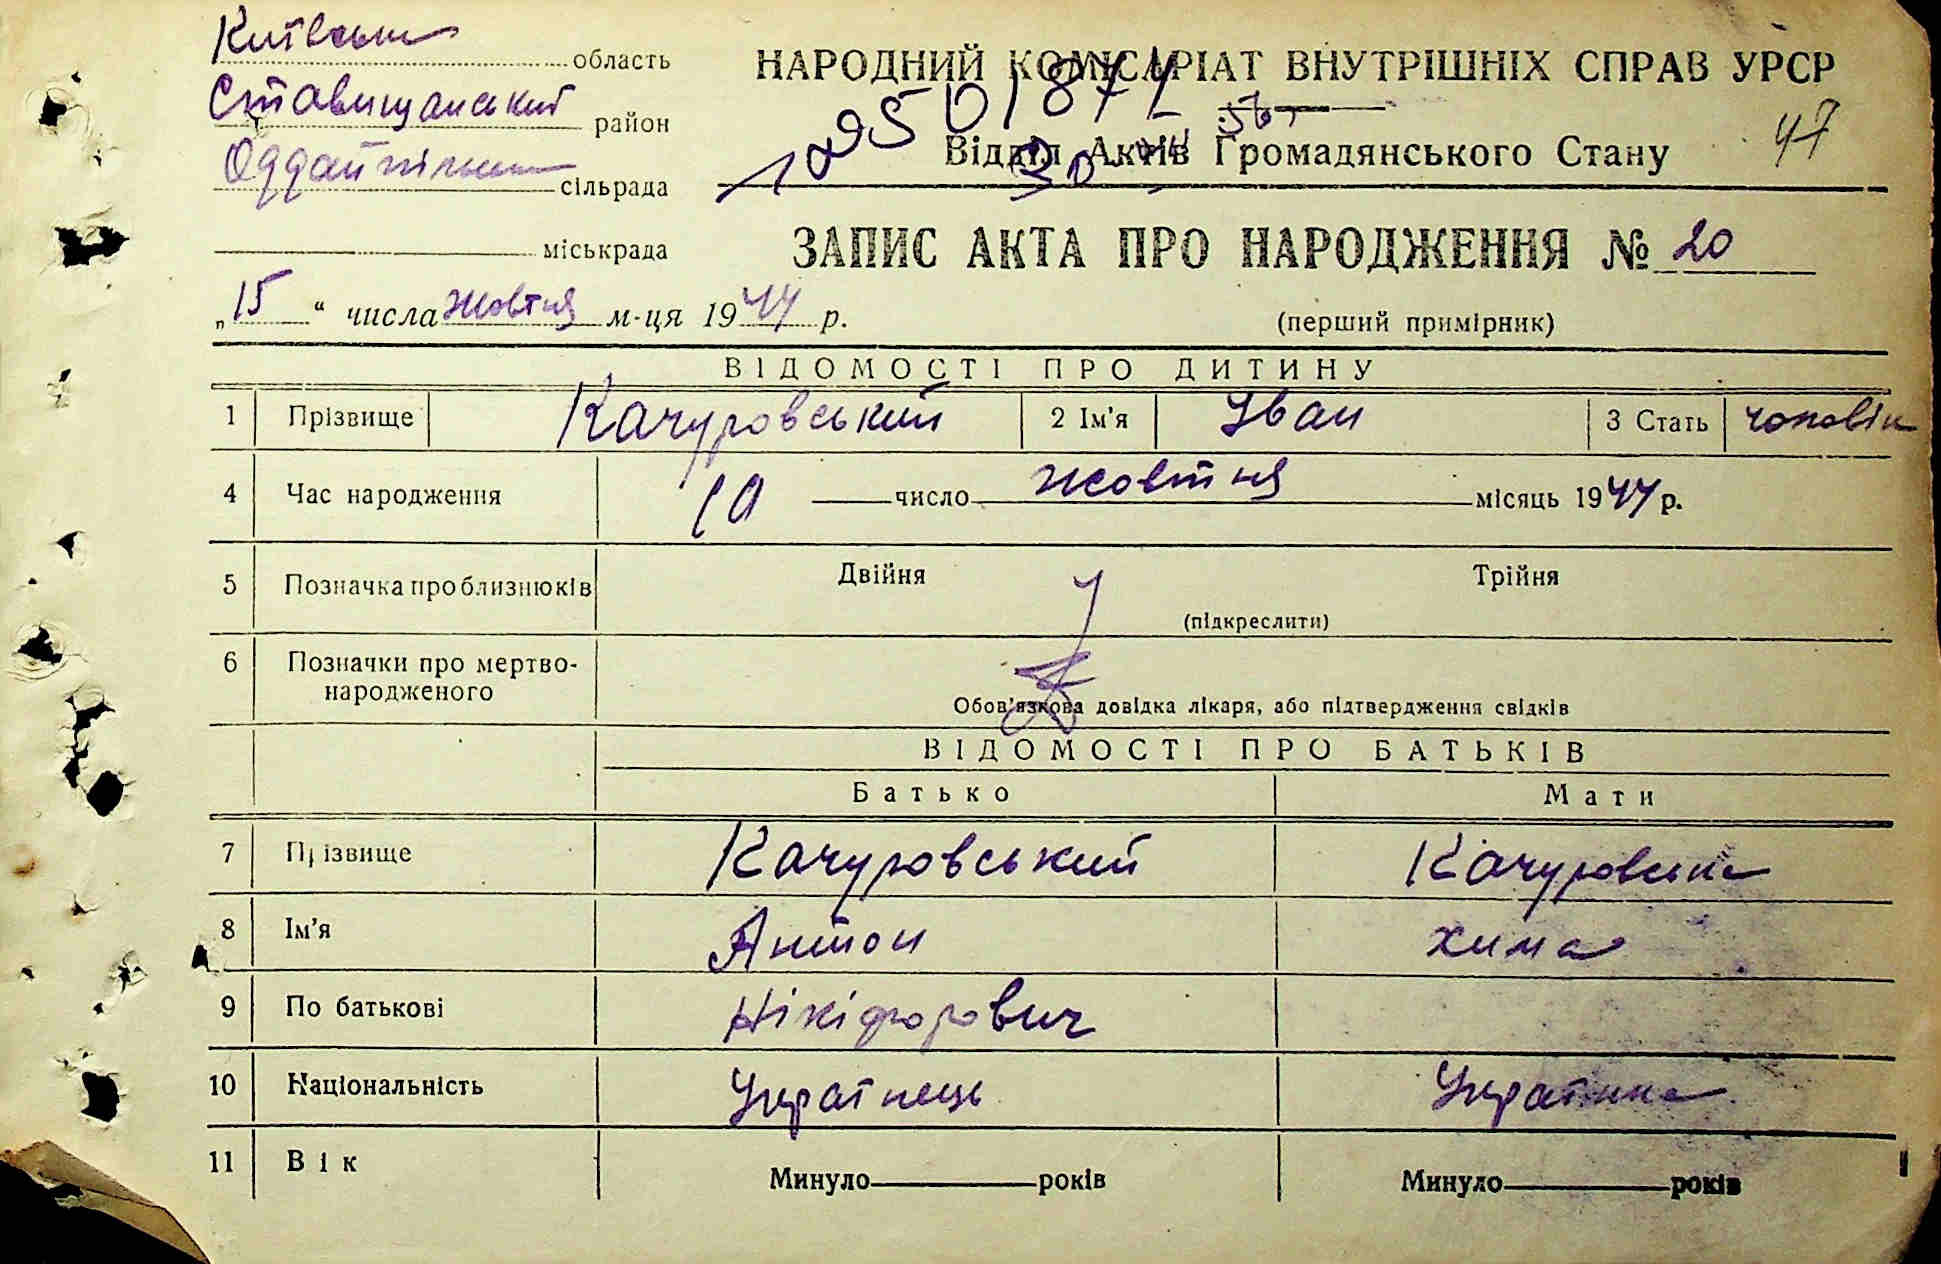 Київська область
Ставищанський район
сільрада
міськрада
НАРОДНИЙ КОМІСАРІАТ ВНУТРІШНІХ СПРАВ УРСР
47
Відділ Актів Громадянського Стану
ЗАПИС АКТА ПРО НАРОДЖЕННЯ № 20
„15“ числа жовтня м-ця 1944 р.
(перший примірник)
ВІДОМОСТІ ПРО ДИТИНУ
1 Прізвище Качуровський 2 Ім'я Іван 3 Стать чоловік
4 Час народження 10 число жовтня місяць 1944 р.
5 Позначка про близнюків Двійня Трійня
(підкреслити)
6 Позначки про мертво-
народженого
Обов'язкова довідка лікаря, або підтвердження свідків
ВІДОМОСТІ ПРО БАТЬКІВ
Батько Мати
7 Прізвище Качуровський Качуровська
8 Ім'я Антон Хима
9 По батькові Нікіфорович
10 Національність Українець Українка
11 Вік Минуло років Минуло років